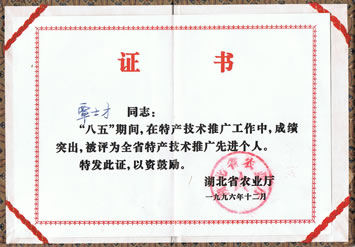 证书
覃士才 同志:
“八五”期间,在特产技术推广工作中,成绩
突出,被评为全省特产技术推广先进个人。
特发此证,以资鼓励。
湖北省农业厅
一九九六年十二月